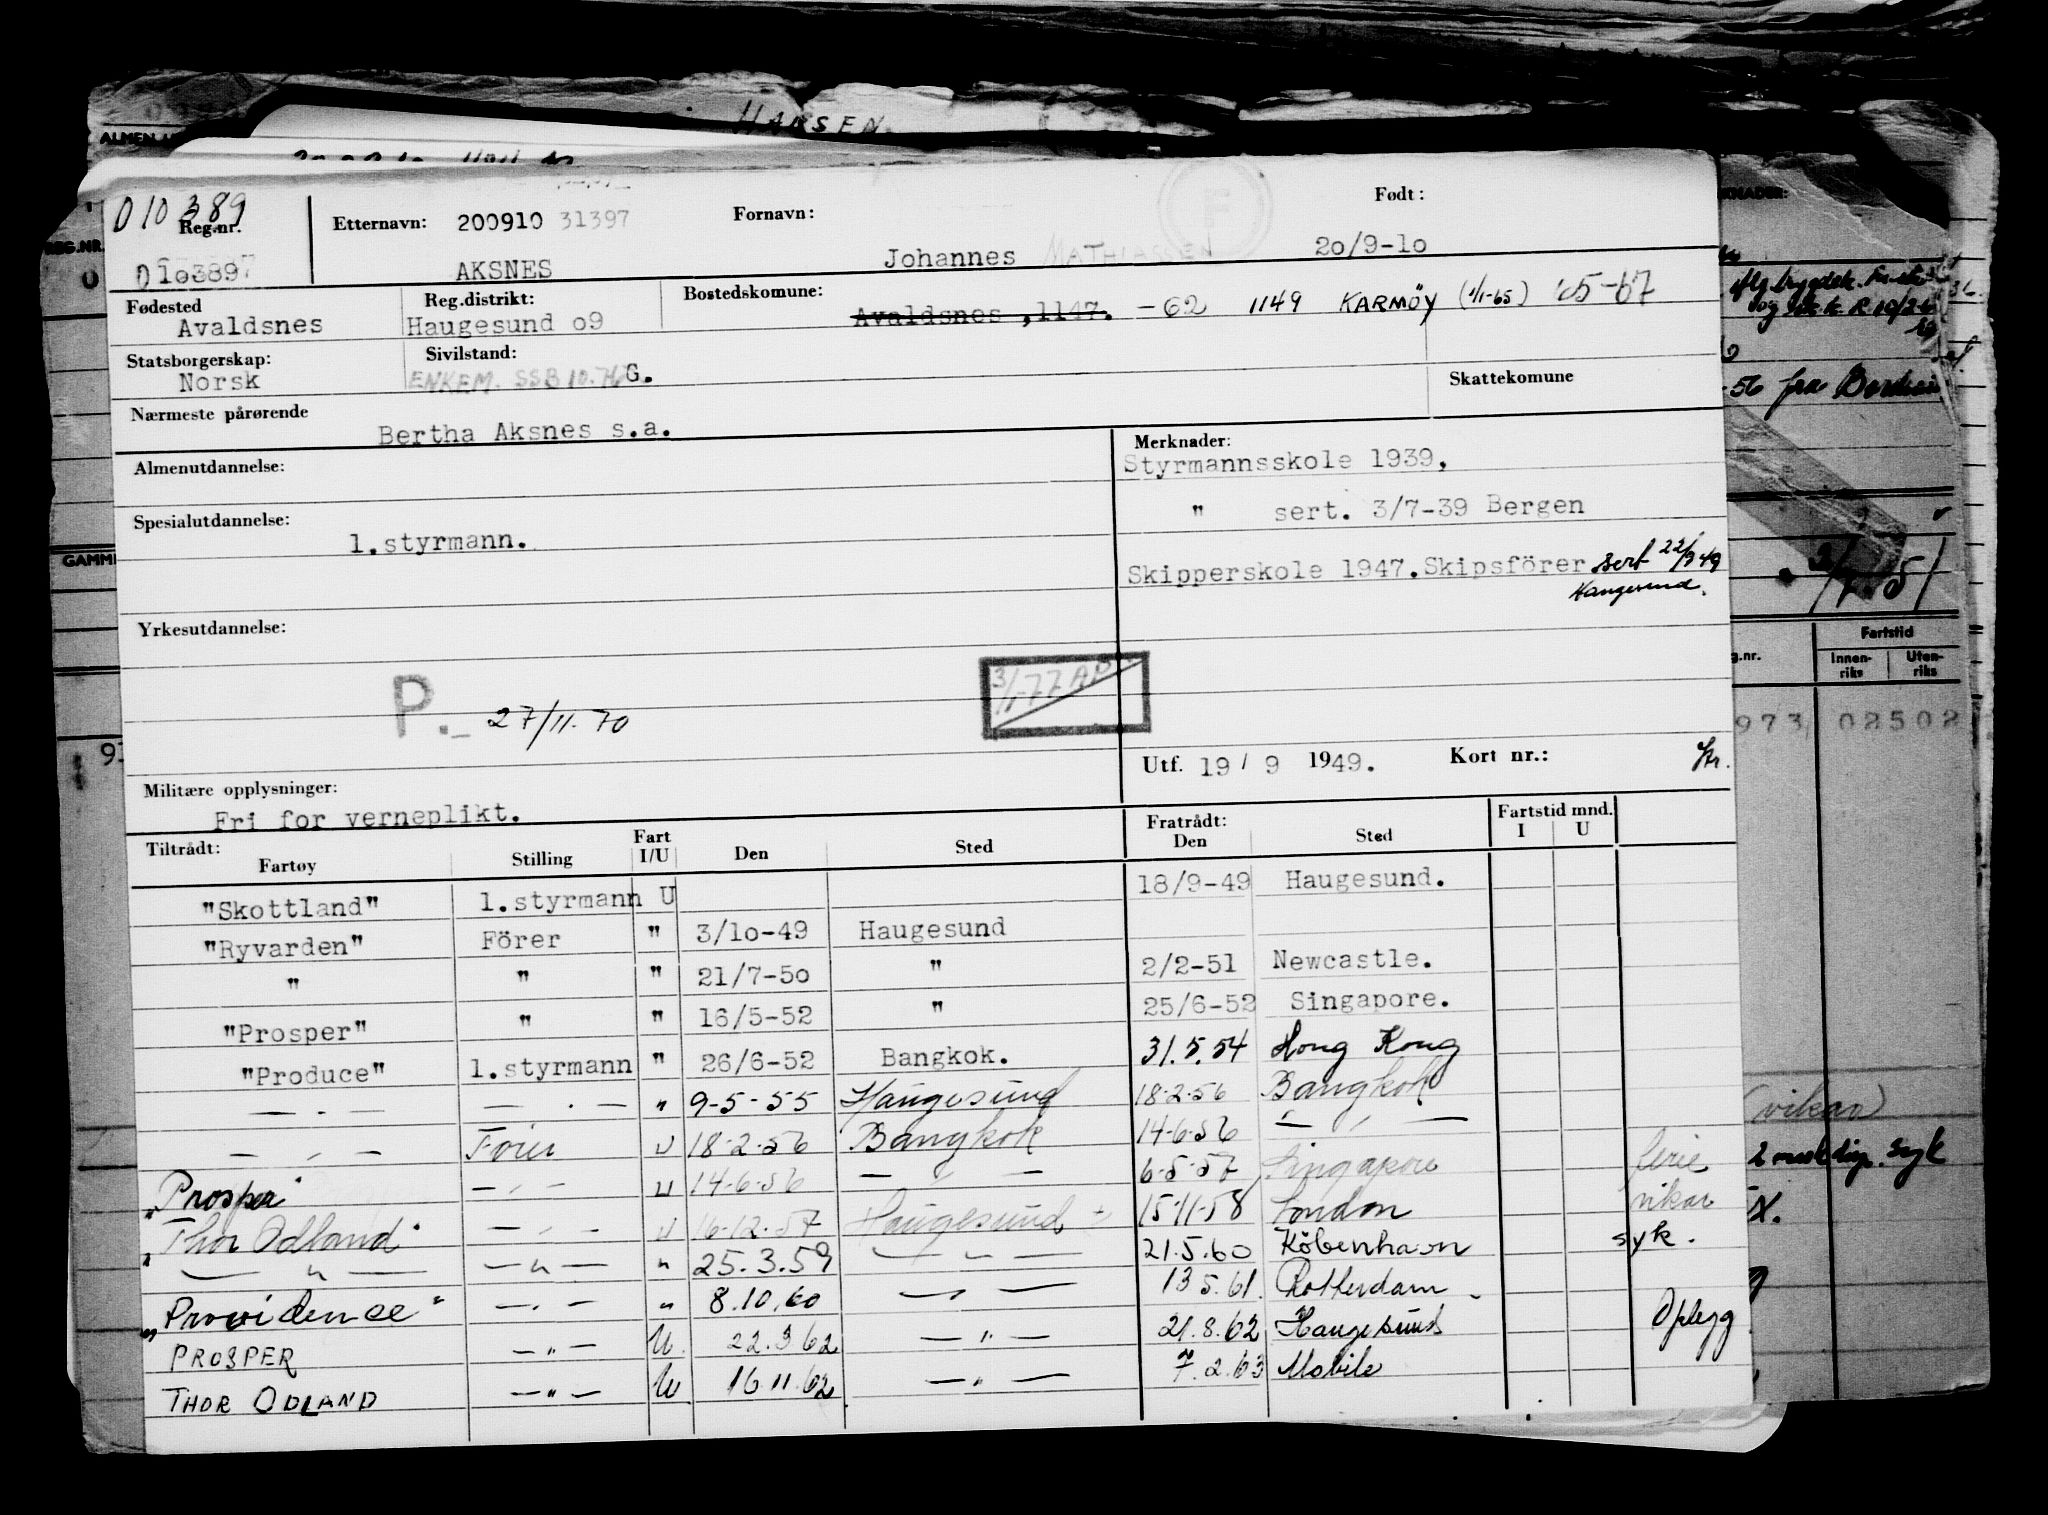 HANSEN
010389
Reg.nr. Etternavn: 200910 31397 Fornavn: Født:
0103897 AKSNES Johannes MATHIASSEN 20/9-10
Fødested Reg.distrikt: Bostedskomune:
Avaldsnes Haugesund 09 Avaldsnes ,1147. -62 1149 KARMØY (1/1-65) 65-67
Statsborgerskap: Sivilstand:
Norsk ENKEM. SSB 10.76 G. Skattekomune
Nærmeste pårørende
Bertha Aksnes s.a.
Almenutdannelse: Merknader:
Styrmannsskole 1939,
Spesialutdannelse: " sert. 3/7-39 Bergen
1.styrmann.
Skipperskole 1947.Skipsförer sert 22/9 49
Haugesund.
Yrkesutdannelse:
3/1-77 AP
P. 27/11.70
Utf. 19 / 9 1949. Kort nr.:
Militære opplysninger:
Fri for verneplikt.
Tiltrådt: Fart Fratrådt: Fartstid mnd.
Fartøy Stilling I/U Den Sted Den Sted I U
"Skottland" 1.styrmann U 18/9-49 Haugesund.
"Ryvarden" Förer " 3/10-49 Haugesund
" " " 21/7-50 " 2/2-51 Newcastle.
"Prosper" " " 16/5-52 " 25/6-52 Singapore.
"Produce" 1.styrmann " 26/6-52 Bangkok. 31.5.54 Hong Kong
— . — — . — " 9-5-55 Haugesund 18-2-56 Bangkok
— , — Fører U 18-2-56 Bangkok 14-6-56 — , —
"Prosper" — , — U 14-6-56 — , — 6-5-57 Singapore ferie
"Thor Odland" — , — U 16-12-57 Haugesund 15-11-58 London vikar
— " — — " — " 25.3.59 — " — 21.5.60 København syk.
"Providence" — , — " 8.10.60 — , — 13.5.61. Rotterdam
PROSPER — " — U. 22.3.62 — " — 21.8.62 Haugesund Oplegg
THOR ODLAND — " — U 16.11.62 — " — 7.2.63 Mobile
REG.NR.
GAMME
Fartstid
Innen-riks Uten-riks
973 02502
56 fra
(vikar)